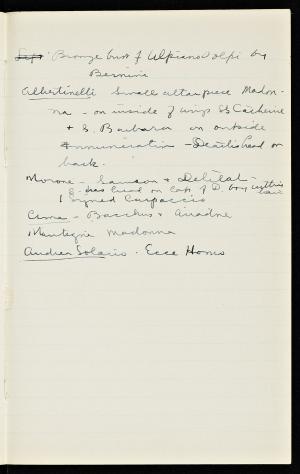 Bronze bust of Ulpiano Volpi by
Bernini
Albertinelli Small altarpiece Madon-
na - on inside of wings SS Catherine
+ S. Barbara on outside
Annunciation - Death's head on
back.
Morone - Samson + Delilah -
S. has head on lap of D. boy cutting hair
Signed Carpaccio
Cima - Bacchus + Ariadne
Mantegna Madonna
Andrea Solario - Ecce Homo